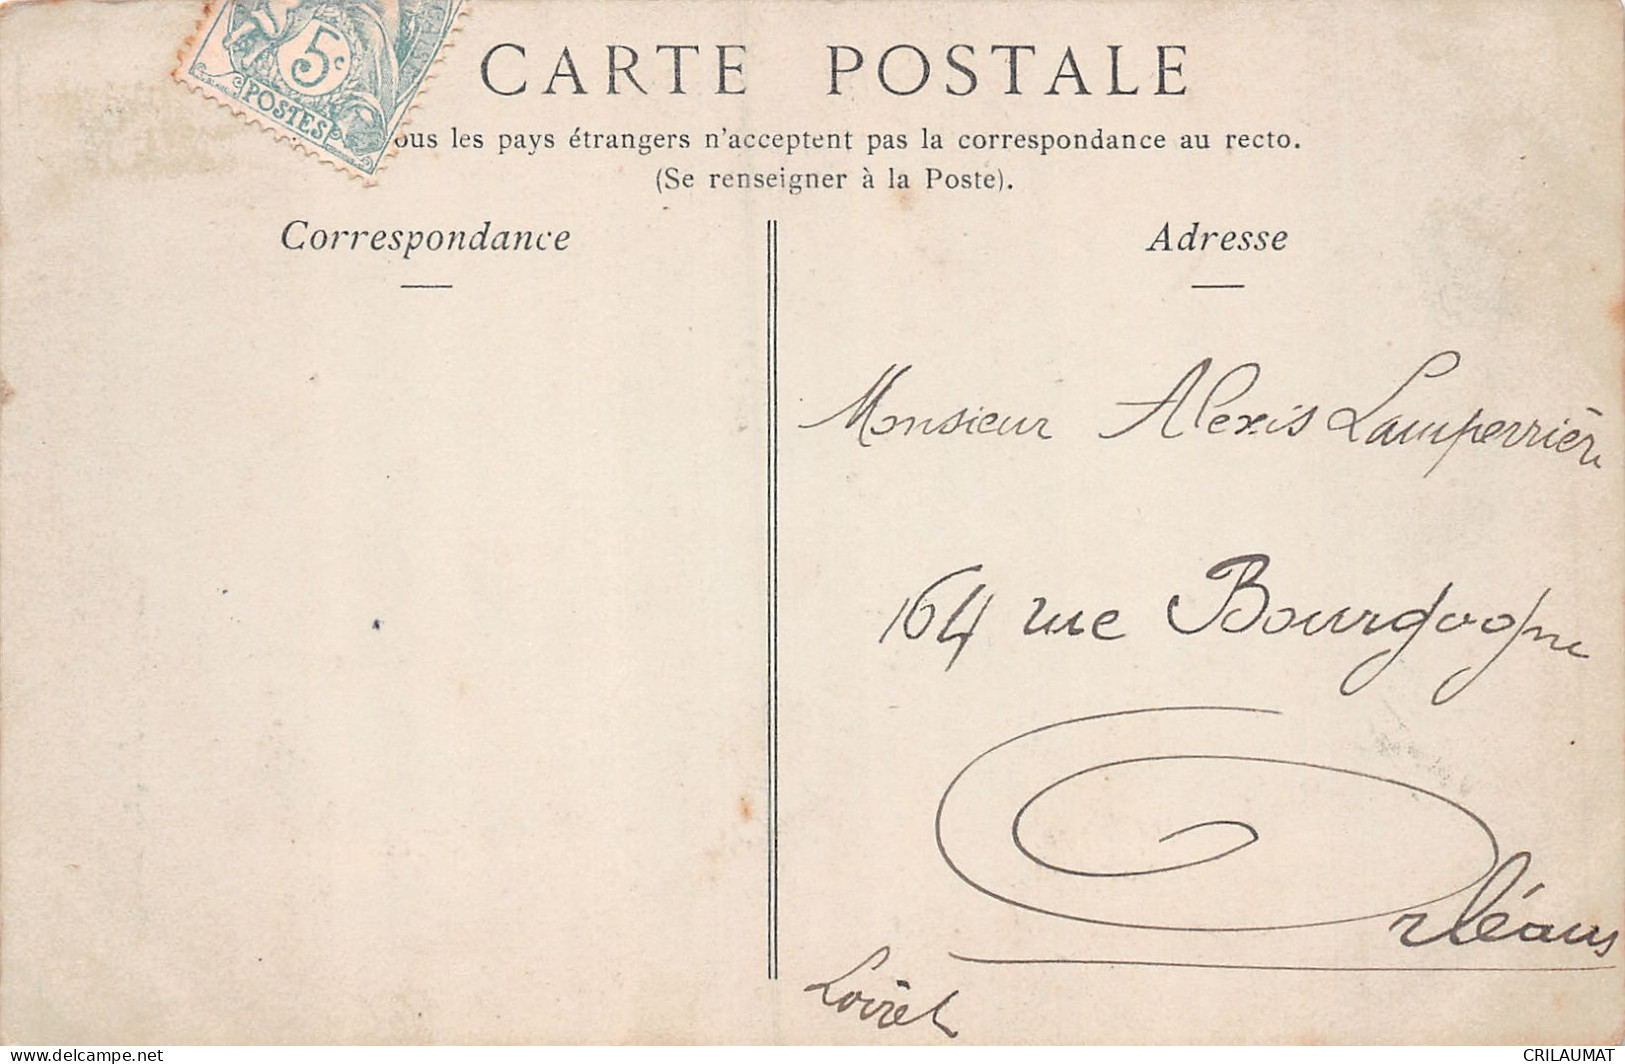 5c
POSTES
CARTE POSTALE
ous les pays étrangers n'acceptent pas la correspondance au recto.
(Se renseigner à la Poste).
Correspondance
Adresse
Monsieur Alexis Lamperrière
164 rue Bourgogne
Orléans
Loiret
www.delcampe.net
CRILAUMAT